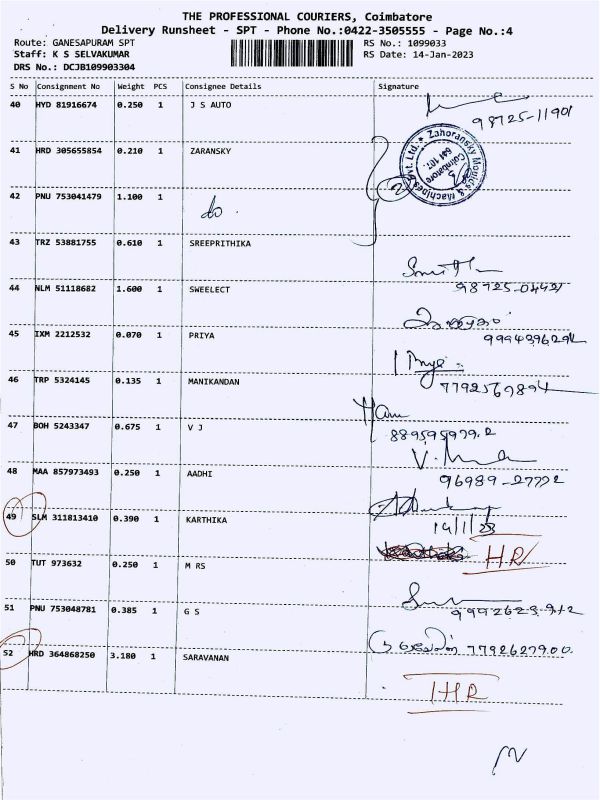 THE PROFESSIONAL COURIERS, Coimbatore
Delivery Runsheet - SPT - Phone No.:0422-3505555 - Page No.:4
Route: GANESAPURAM SPT RS No.: 1099033
Staff: K S SELVAKUMAR RS Date: 14-Jan-2023
DRS No.: DCJB109903304
S No Consignment No Weight PCS Consignee Details Signature
40 HYD 81916674 0.250 1 J S AUTO
98725-11901
41 HRD 305655854 0.210 1 ZARANSKY
Zahoransky Moulds & Machines Pvt. Ltd. * Coimbatore 641 107.
42 PNU 753041479 1.100 1 do
43 TRZ 53881755 0.610 1 SREEPRITHIKA
44 NLM 51118682 1.600 1 SWEELECT
45 IXM 2212532 0.070 1 PRIYA
46 TRP 5324145 0.135 1 MANIKANDAN
47 BOH 5243347 0.675 1 V J
48 MAA 857973493 0.250 1 AADHI
96989-27772
49 SLM 311813410 0.390 1 KARTHIKA
14/1/23
HR
50 TUT 973632 0.250 1 M RS
51 PNU 753048781 0.385 1 G S
52 HRD 364868250 3.180 1 SARAVANAN
7792627900
IHR